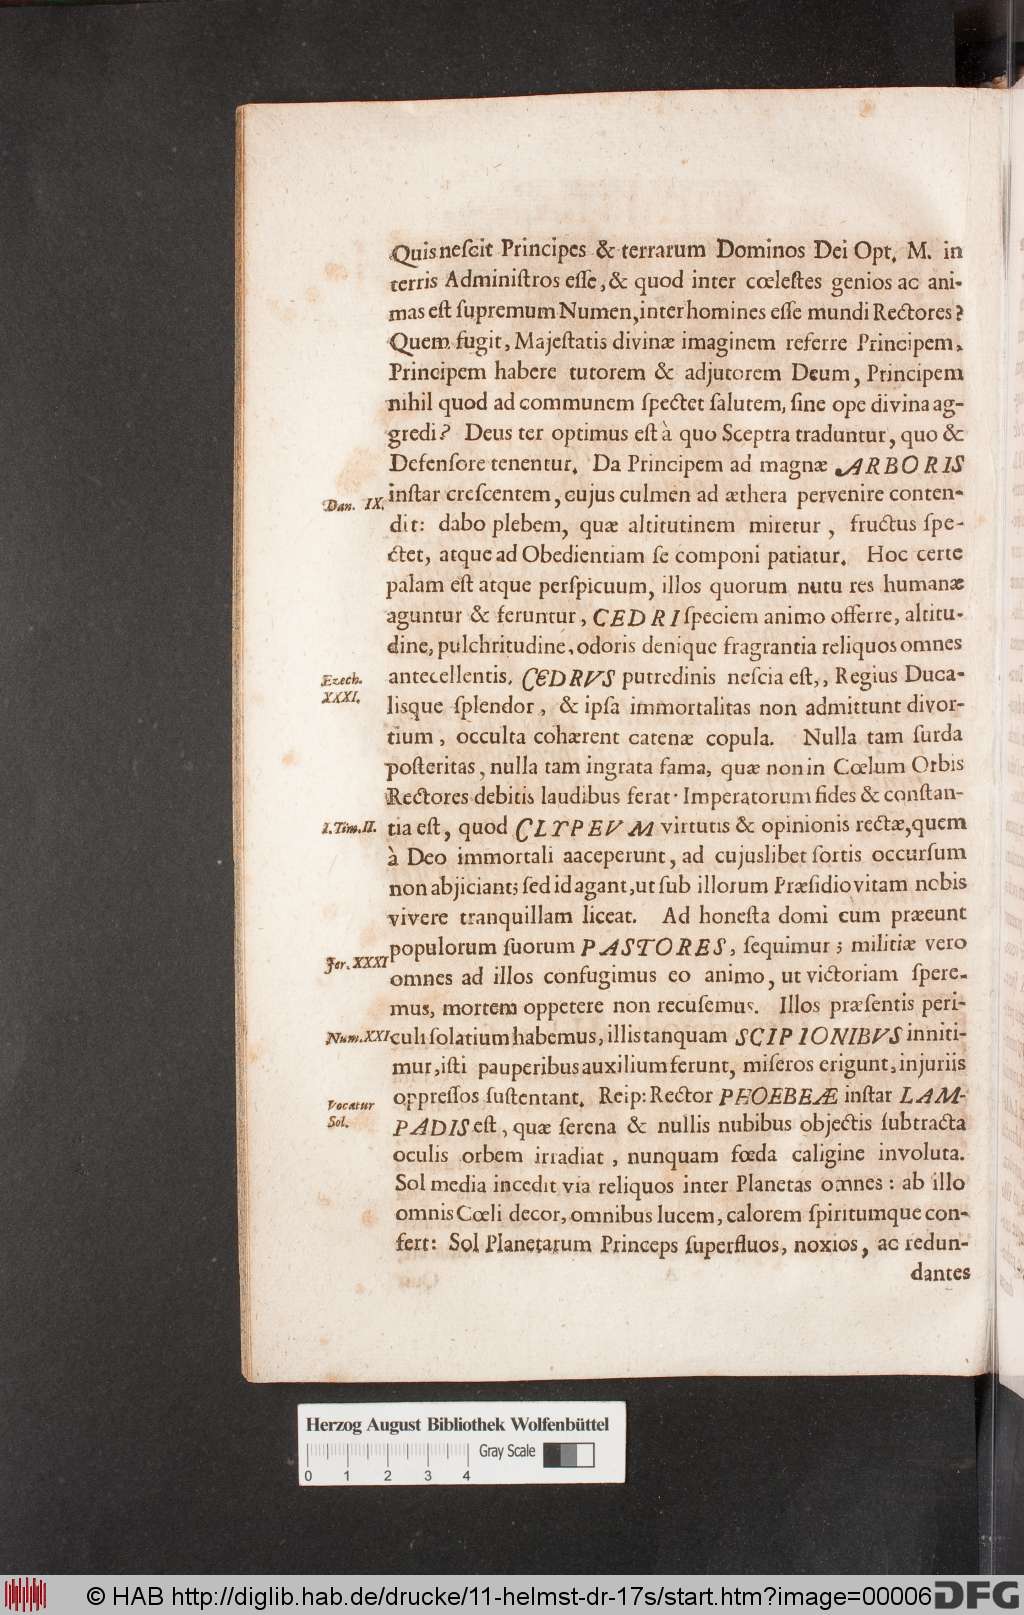 Quis neſcit Principes & terrarum Dominos Dei Opt. M. in
terris Adminiſtros eſſe, & quod inter cœleſtes genios ac ani-
mas eſt ſupremum Numen, inter homines eſſe mundi Rectores?
Quem fugit, Majeſtatis divinæ imaginem referre Principem,
Principem habere tutorem & adjutorem Deum, Principem
nihil quod ad communem ſpectet ſalutem, ſine ope divina ag-
gredi? Deus ter optimus eſt à quo Sceptra traduntur, quo &
Defenſore tenentur. Da Principem ad magnæ ARBORIS
Dan. IX.
inſtar creſcentem, cujus culmen ad æthera pervenire conten-
dit: dabo plebem, quæ altitutinem miretur, fructus ſpe-
ctet, atque ad Obedientiam ſe componi patiatur. Hoc certe
palam eſt atque perſpicuum, illos quorum nutu res humanæ
aguntur & feruntur, CEDRI ſpeciem animo offerre, altitu-
dine, pulchritudine, odoris denique fragrantia reliquos omnes
Ezech.
XXXI.
antecellentis. CEDRVS putredinis neſcia eſt,, Regius Duca-
lisque ſplendor, & ipſa immortalitas non admittunt divor-
tium, occulta cohærent catenæ copula. Nulla tam ſurda
poſteritas, nulla tam ingrata fama, quæ non in Cœlum Orbis
Rectores debitis laudibus ferat. Imperatorum fides & conſtan-
1. Tim. II.
tia eſt, quod CLYPEVM virtutis & opinionis rectæ, quem
à Deo immortali aaceperunt, ad cujuslibet ſortis occurſum
non abjiciant; ſed id agant, ut ſub illorum Præſidio vitam nobis
vivere tranquillam liceat. Ad honeſta domi cum præeunt
Jer. XXXI
populorum ſuorum PASTORES, ſequimur; militiæ vero
omnes ad illos confugimus eo animo, ut victoriam ſpere-
mus, mortem oppetere non recuſemus. Illos præſentis peri-
Num. XXI
culi ſolatium habemus, illis tanquam SCIPIONIBVS inniti-
mur, iſti pauperibus auxilium ferunt, miſeros erigunt, injuriis
Vocatur
Sol.
oppreſſos ſuſtentant. Reip: Rector PHOEBEÆ inſtar LAM-
PADIS eſt, quæ ſerena & nullis nubibus objectis ſubtracta
oculis orbem irradiat, nunquam fœda caligine involuta.
Sol media incedit via reliquos inter Planetas omnes: ab illo
omnis Cœli decor, omnibus lucem, calorem ſpiritumque con-
fert: Sol Planetarum Princeps ſuperfluos, noxios, ac redun-
dantes
Herzog August Bibliothek Wolfenbüttel
Gray Scale
0 1 2 3 4
© HAB http://diglib.hab.de/drucke/11-helmst-dr-17s/start.htm?image=00006
DFG